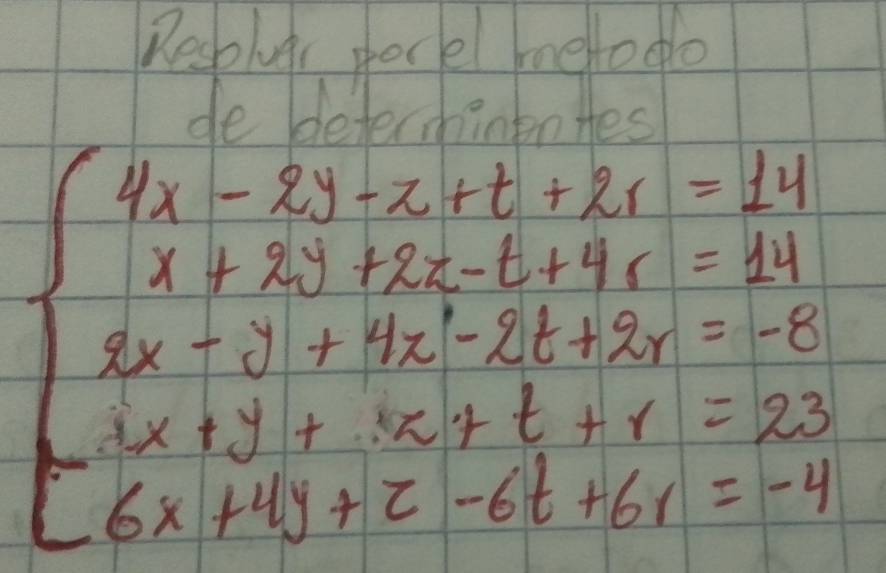 Resolver por el metodo
de determinantes
4x - 2y - z + t + 2r = 14
x + 2y + 2z - t + 4r = 14
2x - y + 4z - 2t + 2r = -8
x + y + z + t + r = 23
6x + 4y + z - 6t + 6r = -4